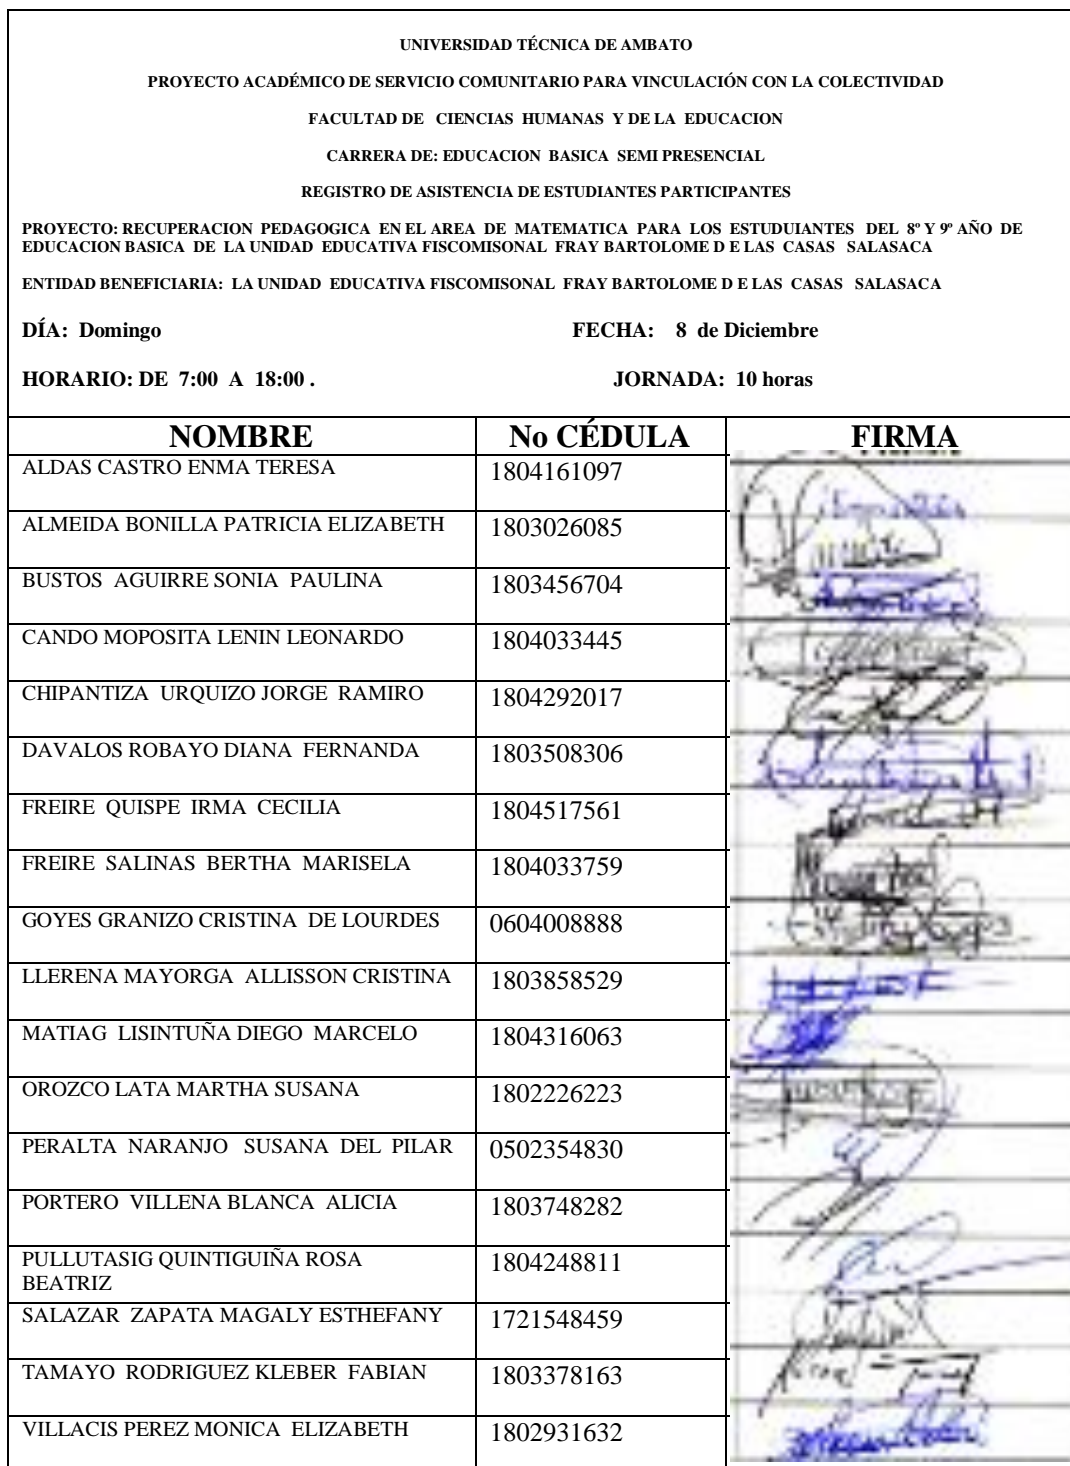 UNIVERSIDAD TÉCNICA DE AMBATO
PROYECTO ACADÉMICO DE SERVICIO COMUNITARIO PARA VINCULACIÓN CON LA COLECTIVIDAD
FACULTAD DE CIENCIAS HUMANAS Y DE LA EDUCACION
CARRERA DE: EDUCACION BASICA SEMI PRESENCIAL
REGISTRO DE ASISTENCIA DE ESTUDIANTES PARTICIPANTES
PROYECTO: RECUPERACION PEDAGOGICA EN EL AREA DE MATEMATICA PARA LOS ESTUDUIANTES DEL 8º Y 9º AÑO DE
EDUCACION BASICA DE LA UNIDAD EDUCATIVA FISCOMISONAL FRAY BARTOLOME D E LAS CASAS SALASACA
ENTIDAD BENEFICIARIA: LA UNIDAD EDUCATIVA FISCOMISONAL FRAY BARTOLOME D E LAS CASAS SALASACA
DÍA: Domingo FECHA: 8 de Diciembre
HORARIO: DE 7:00 A 18:00 . JORNADA: 10 horas
NOMBRE No CÉDULA FIRMA
ALDAS CASTRO ENMA TERESA 1804161097
ALMEIDA BONILLA PATRICIA ELIZABETH 1803026085
BUSTOS AGUIRRE SONIA PAULINA 1803456704
CANDO MOPOSITA LENIN LEONARDO 1804033445
CHIPANTIZA URQUIZO JORGE RAMIRO 1804292017
DAVALOS ROBAYO DIANA FERNANDA 1803508306
FREIRE QUISPE IRMA CECILIA 1804517561
FREIRE SALINAS BERTHA MARISELA 1804033759
GOYES GRANIZO CRISTINA DE LOURDES 0604008888
LLERENA MAYORGA ALLISSON CRISTINA 1803858529
MATIAG LISINTUÑA DIEGO MARCELO 1804316063
OROZCO LATA MARTHA SUSANA 1802226223
PERALTA NARANJO SUSANA DEL PILAR 0502354830
PORTERO VILLENA BLANCA ALICIA 1803748282
PULLUTASIG QUINTIGUIÑA ROSA 1804248811
BEATRIZ
SALAZAR ZAPATA MAGALY ESTHEFANY 1721548459
TAMAYO RODRIGUEZ KLEBER FABIAN 1803378163
VILLACIS PEREZ MONICA ELIZABETH 1802931632